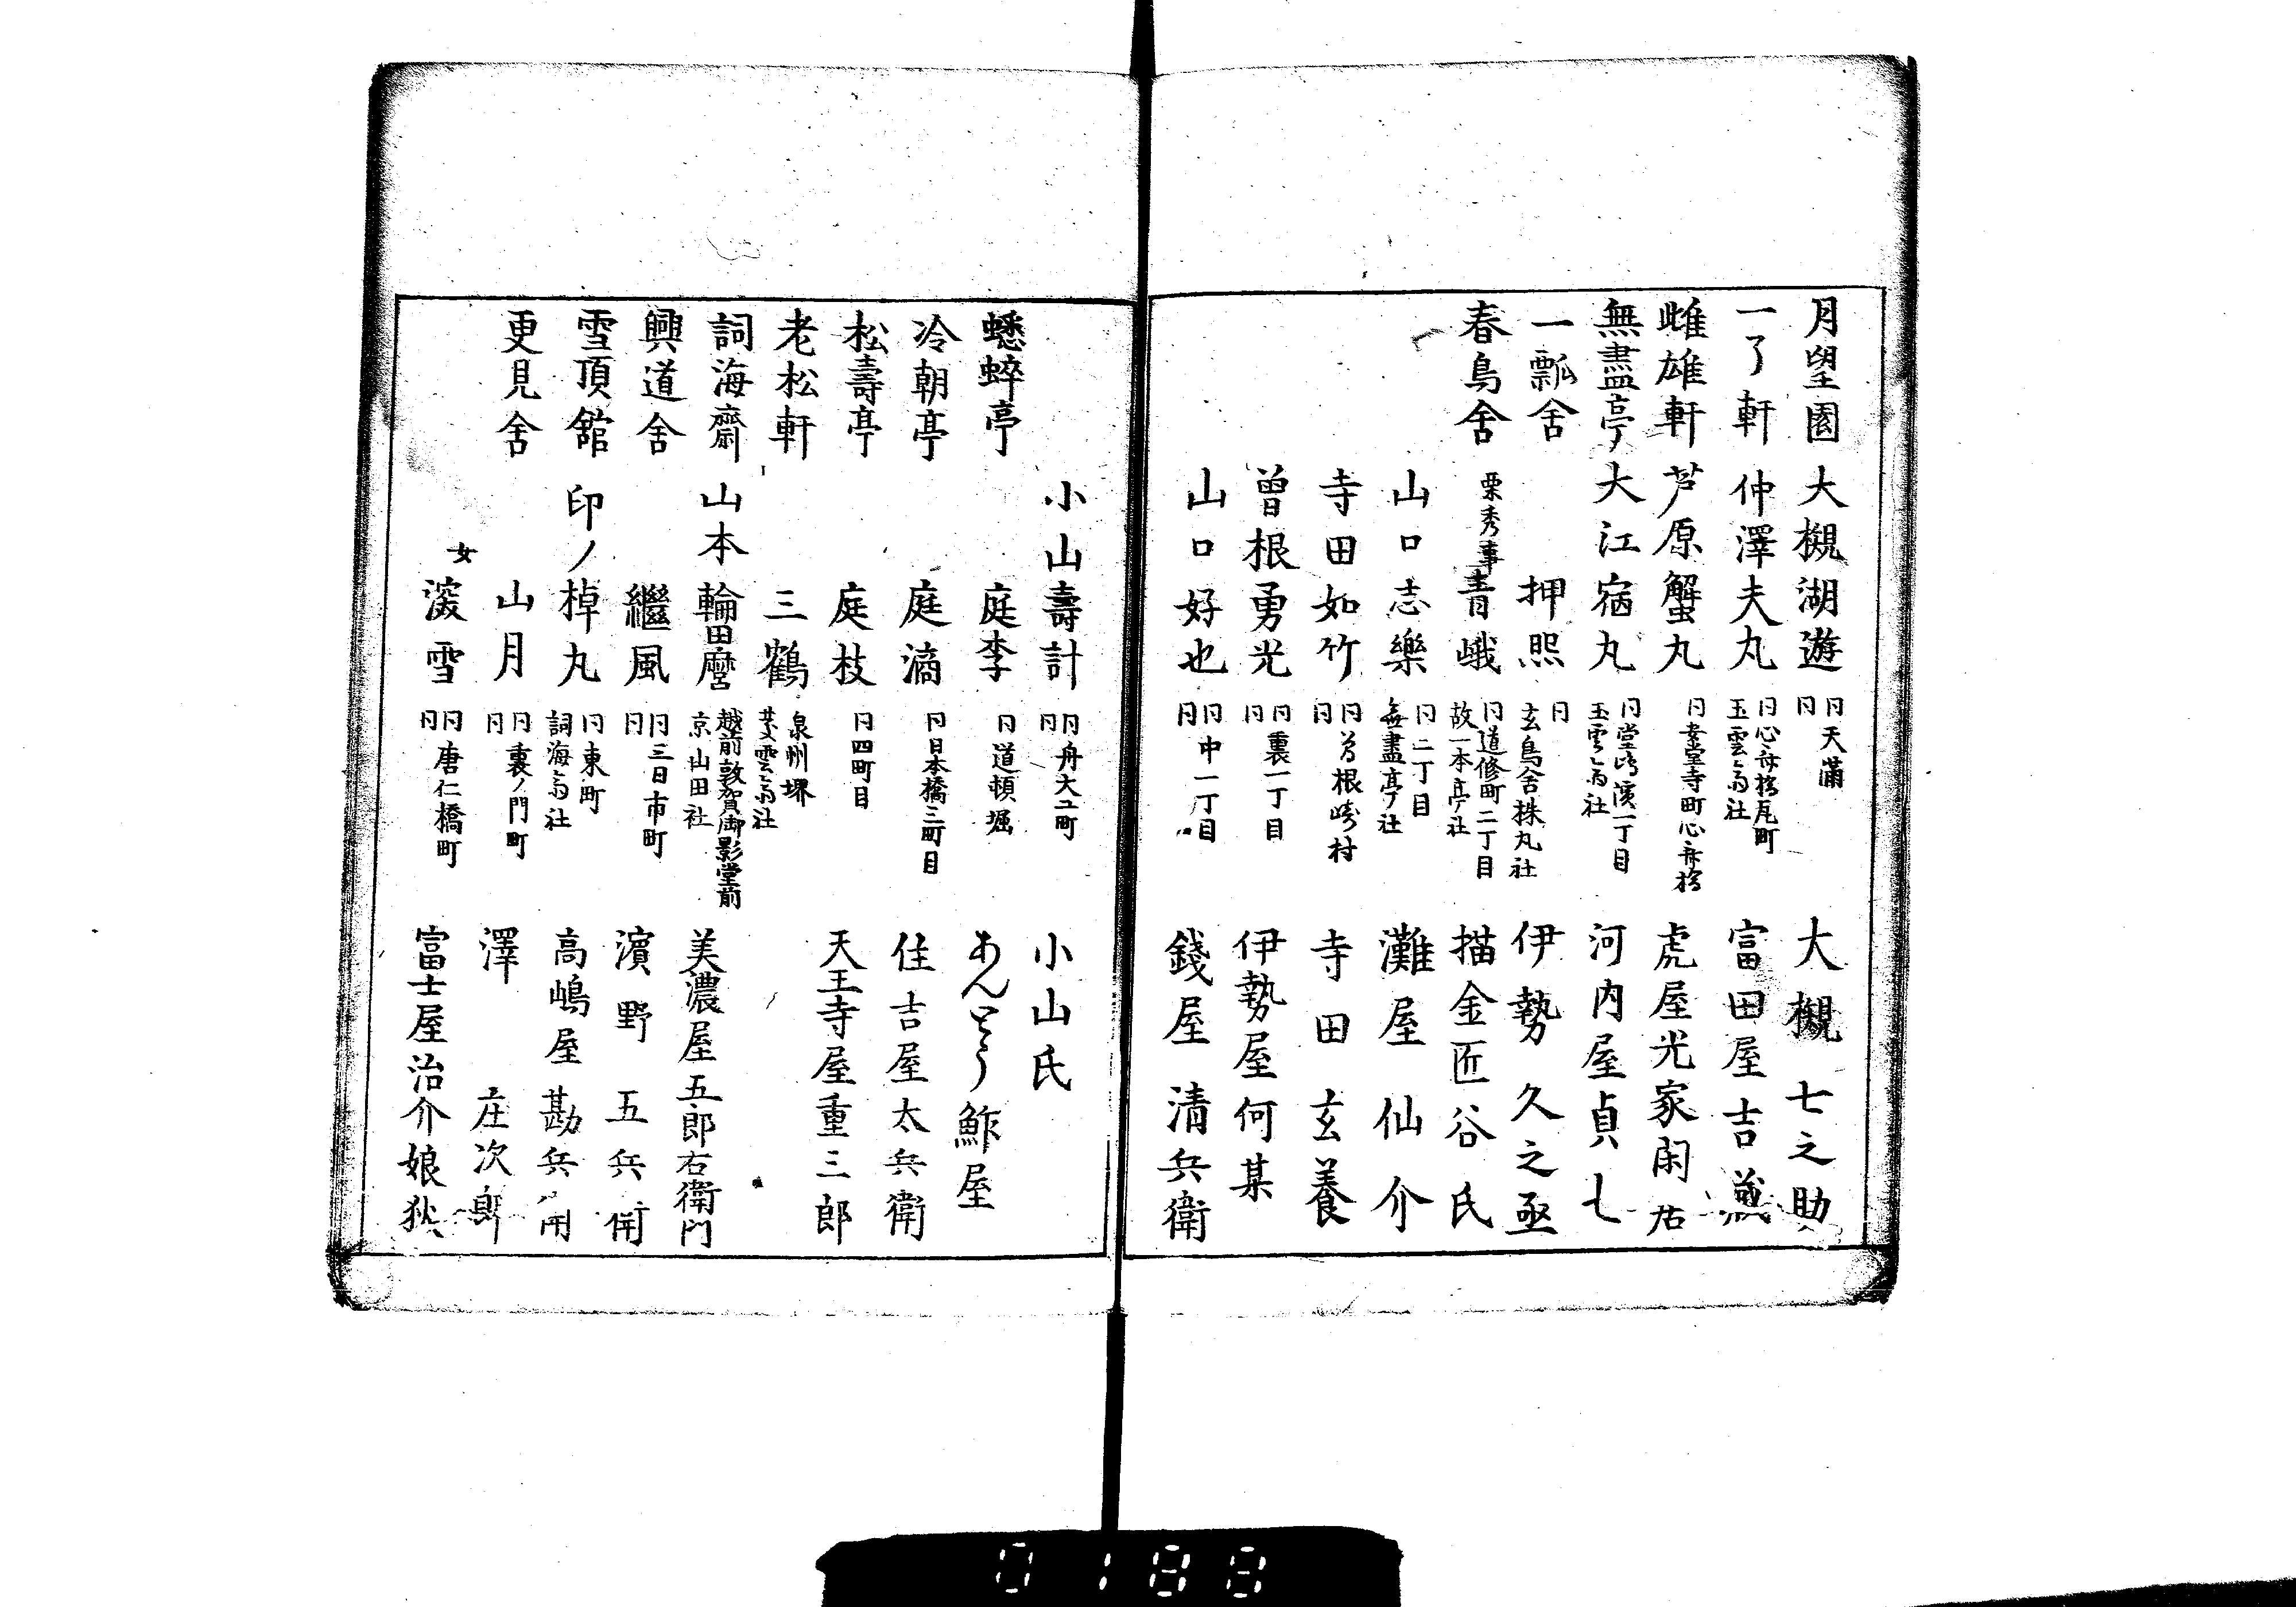 月望園 大槻湖遊 同天滿 同 大槻七之助
一了軒 仲澤夫丸 同心斎橋瓦町 玉雲斎社 富田屋吉蔵
雌雄軒 芦原蟹丸 同安堂寺町心斎橋 虎屋光家閑居
無盡亭 大江宿丸 同堂嶋濱一丁目 玉雲斎社 河内屋貞七
一瓢舍 押照 同 玄鳥舍株丸社 伊勢久之丞
春鳥舍 栗秀事青峨 同道修町二丁目 故一本亭社 描金匠谷氏
山口志樂 同二丁目 無盡亭社 灘屋仙介
寺田如竹 同曽根崎村 同 寺田玄養
曽根勇光 同裏一丁目 同 伊勢屋何某
山口好也 同中一丁目 同 錢屋清兵衛
小山壽計 同舟大工町 同 小山氏
蟋蟀亭 庭李 同道頓堀 あんどう鮓屋
冷朝亭 庭滴 同日本橋三町目 住吉屋太兵衛
松壽亭 庭枝 同四町目 天王寺屋重三郎
老松軒 三鶴 泉州堺 雲斎社
詞海齋 山本輪田麿 越前敦賀御影堂前 京山田社 美濃屋五郎右衛門
興道舍 繼風 同三日市町 同 濱野五兵衛
雪頂館 印ノ棹丸 同東町 詞海斎社 高嶋屋勘兵衛
更見舍 山月 同裏ノ門町 同 澤庄次郎
女 雪 同唐仁橋町 同 富士屋治介娘
0188